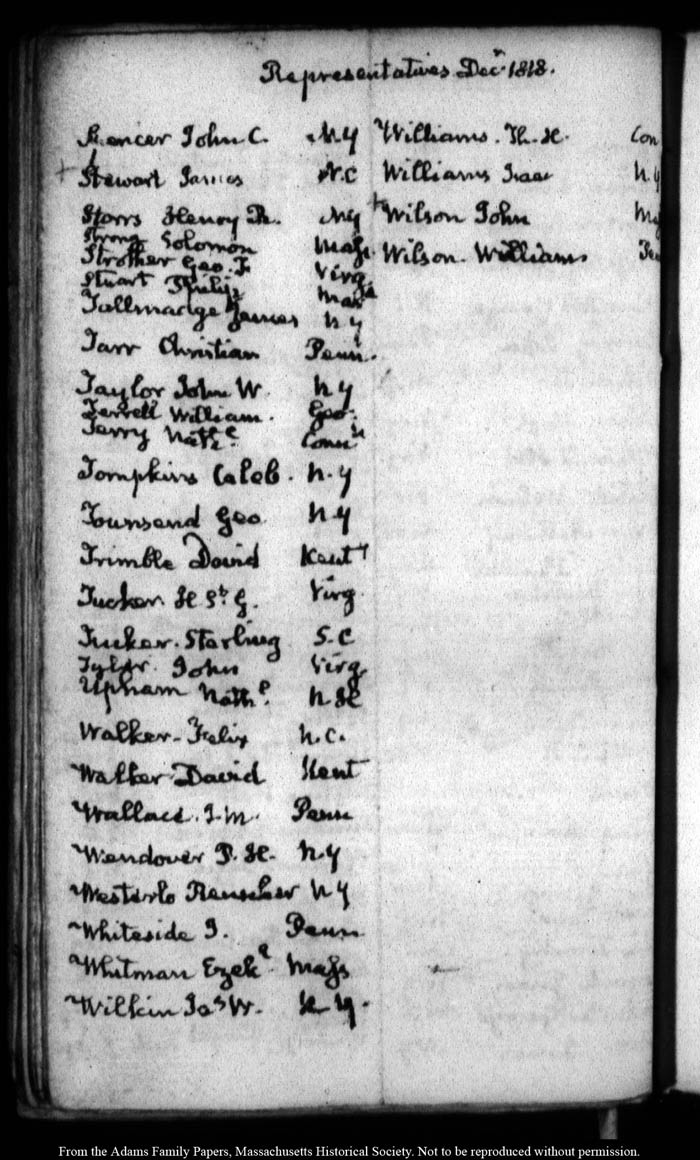 Representatives Decr 1818.
Spencer John C. N.Y
Stewart James N.C
Storrs Henry R. N.Y
Strong Solomon Mass.
Strother Geo. F. Virg
Stuart Philip Maryd
Tallmadge James N Y
Tarr Christian Penn.
Taylor John W. N Y
Terrell William. Geo.
Terry Nathl Connt
Tompkins Caleb. N.Y
Townsend Geo. N Y
Trimble David Kenty
Tucker H St G. Virg
Tucker. Starling S.C
Tyler. John Virg
Upham Nathl. N.H
Walker. Felix N.C.
Walker David Kent
Wallace. J.M. Penn
Wendover P. H. N.Y
Westerlo Rensselaer N Y
Whiteside J. Penn
Whitman Ezekl Mass
Wilkin Jas W. N Y.
Williams. Th. H. Con
Williams Isaac N.Y
+ Wilson John Mass
Wilson. William Pen
From the Adams Family Papers, Massachusetts Historical Society. Not to be reproduced without permission.